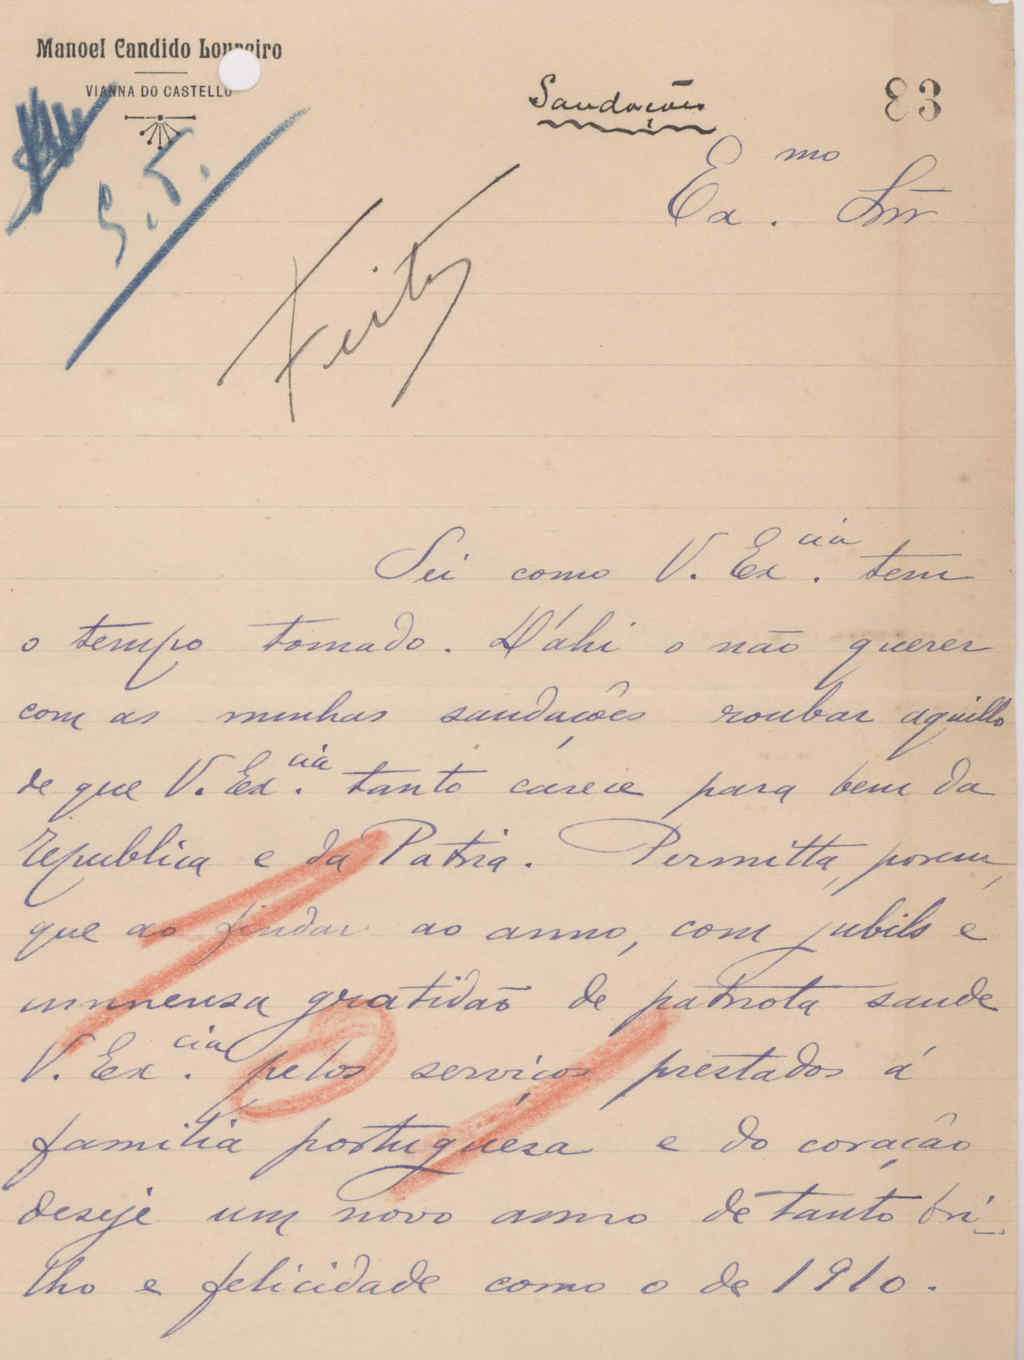 Manoel Candido Loureiro
VIANNA DO CASTELLO
Saudações
83
S. T.
Feito
Ex.mo Snr
Sei como V. Ex.cia tem
o tempo tomado. D'ahi o não querer
com as minhas saudações roubar aquillo
de que V. Ex.cia tanto carece para bem da
republica e da Patria. Permitta, porem,
que ao findar ao anno, com jubilo e
immensa gratidão de patriota saude
V. Ex.cia pelos serviços prestados á
familia portuguesa e do coração
deseje um novo anno de tanto bri-
lho e felicidade como o de 1910.